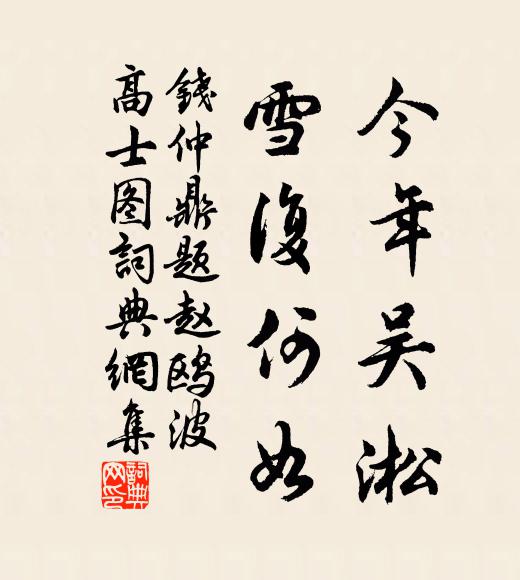 今年吴淞
雪復何如
錢仲鼎题赵鸥波
高士图詞典網集
詞典
网印